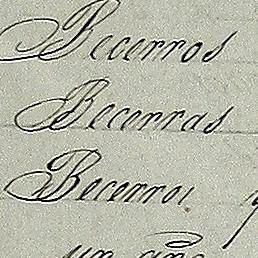 Becerros
Becerras
Becerros y
un año